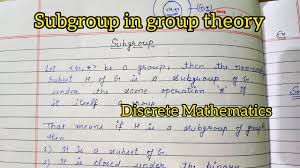 Subgroup in group theory
Subgroup
Let <G, *> be a group, then the non-empty
subset H of G is a subgroup of G
under the same operation if
it itself a group.
Discrete Mathematics
That means if H is a subgroup of
then
1). It is a subset of G.
2). It is closed under the binary